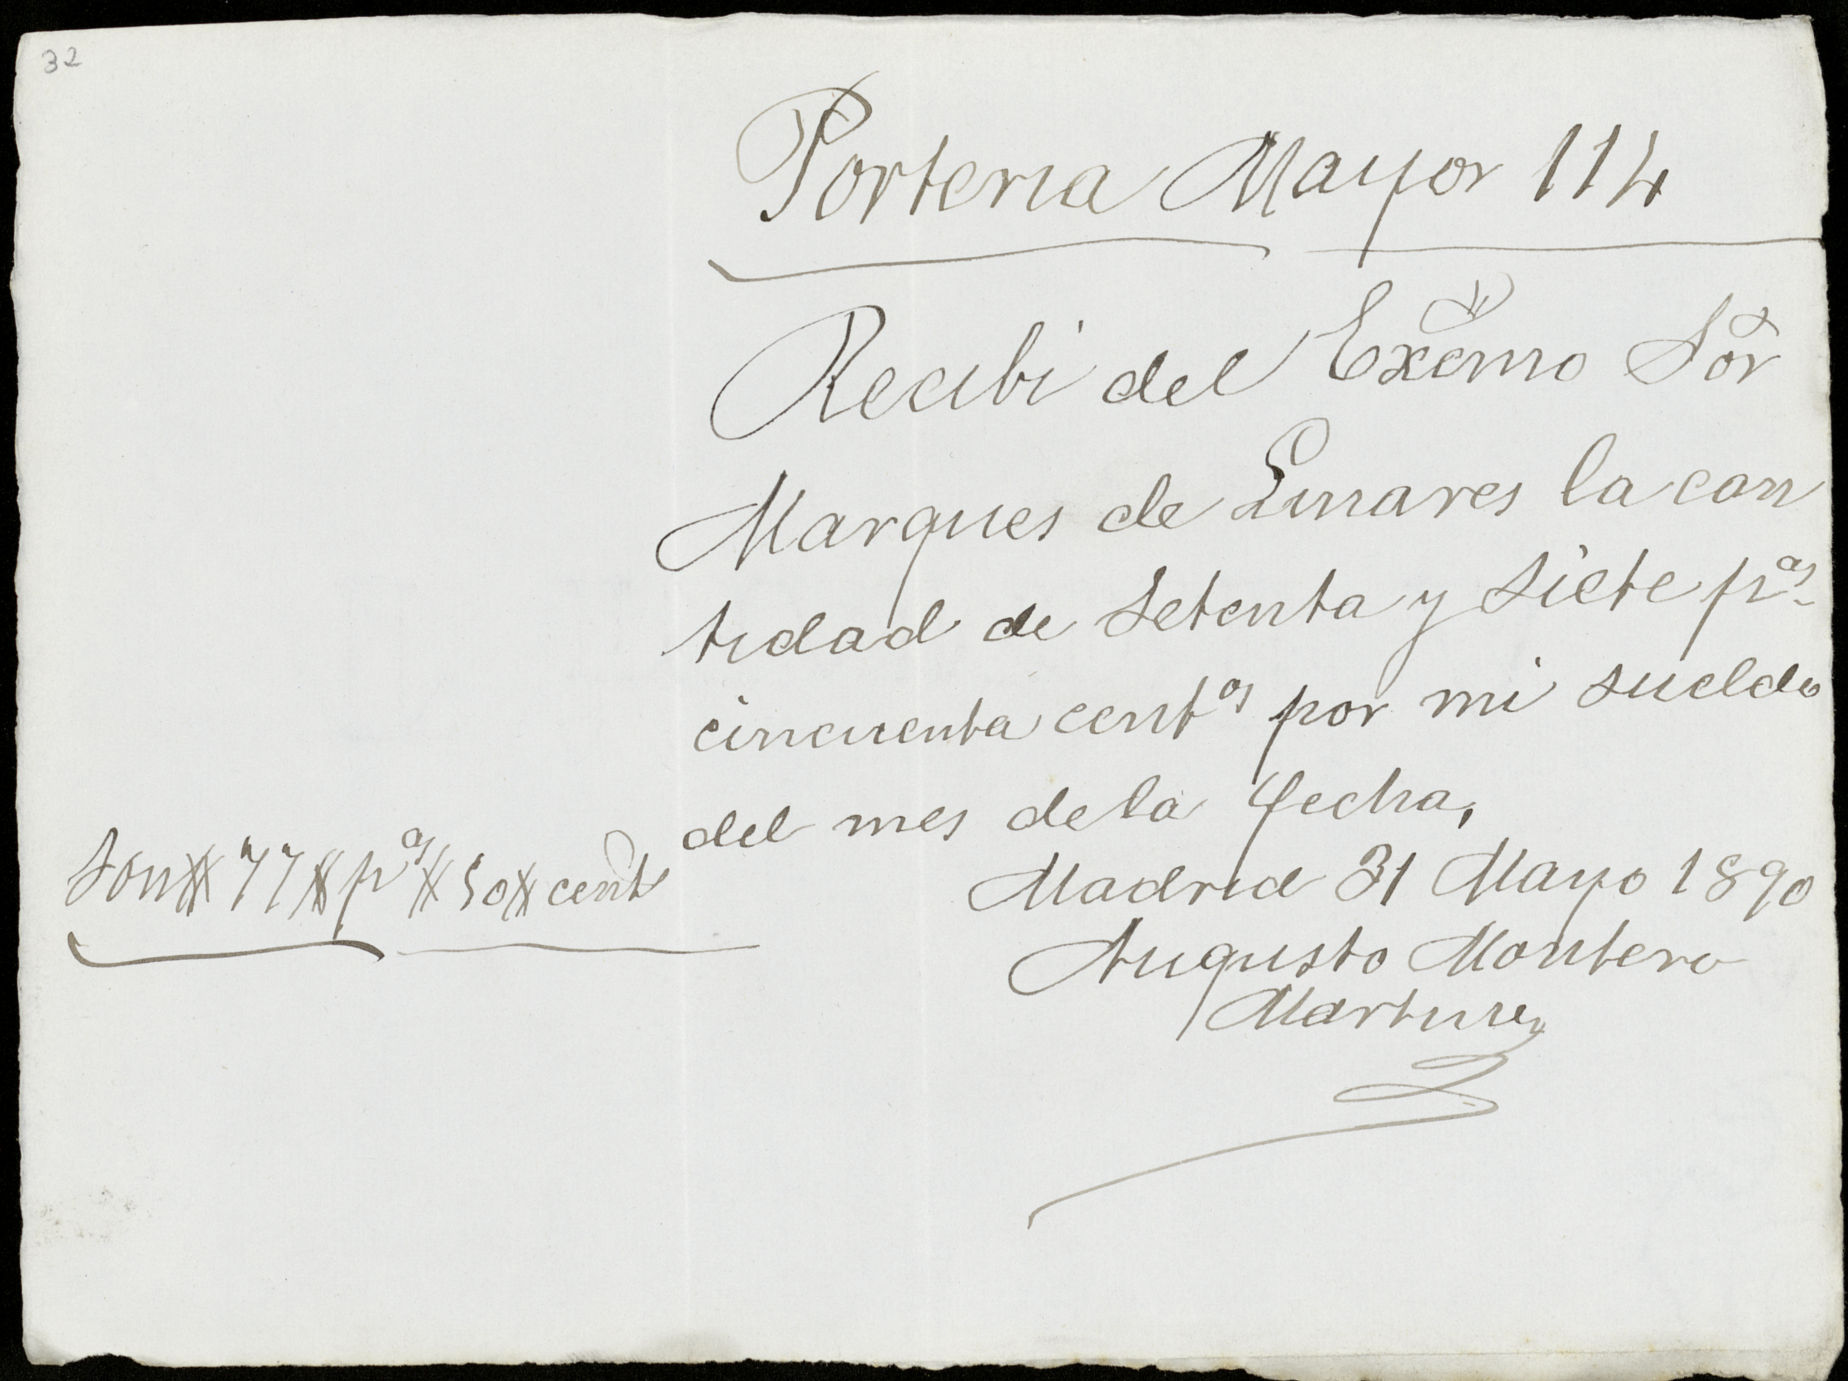 32
Porteria Mayor 114
Recibi del Excmo Sor
Marques de Linares la can
tidad de setenta y siete p.as
cincuenta cent.os por mi sueldo
del mes de la fecha,
Son # 77 # p.as # 50 # cents
Madrid 31 Mayo 1890
Augusto Montero
Martinez